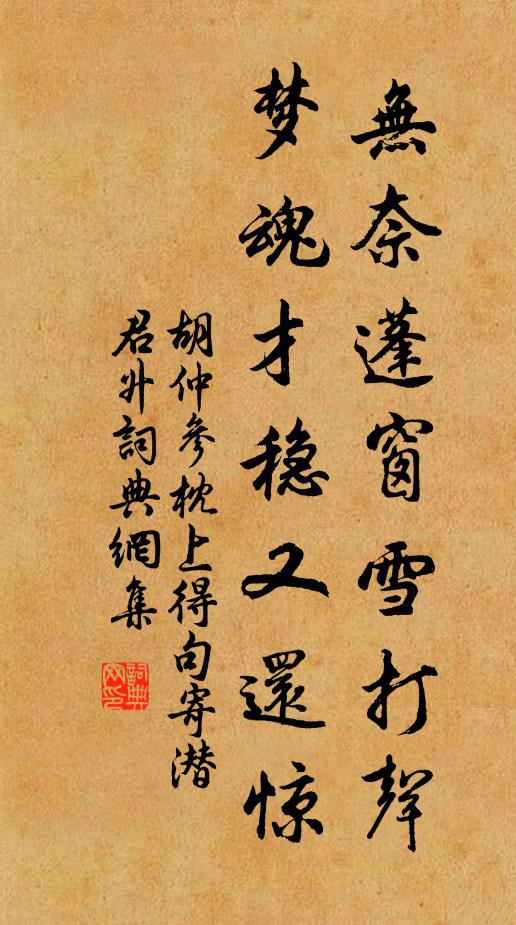 無奈蓬窗雪打聲
梦魂才稳又還惊
胡仲參枕上得句寄潜
君外詞典網集
詞典网印